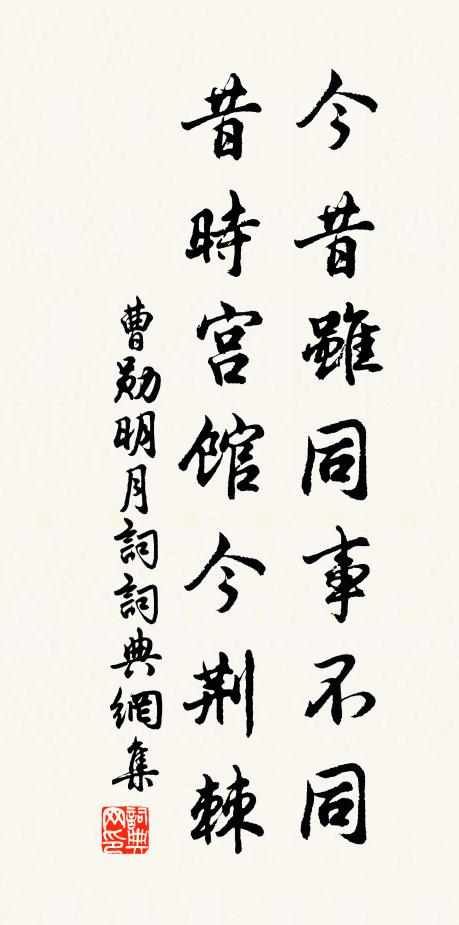 今昔雖同事不同
昔時宮館今荆棘
曹勛明月詞詞典網集
詞典网印